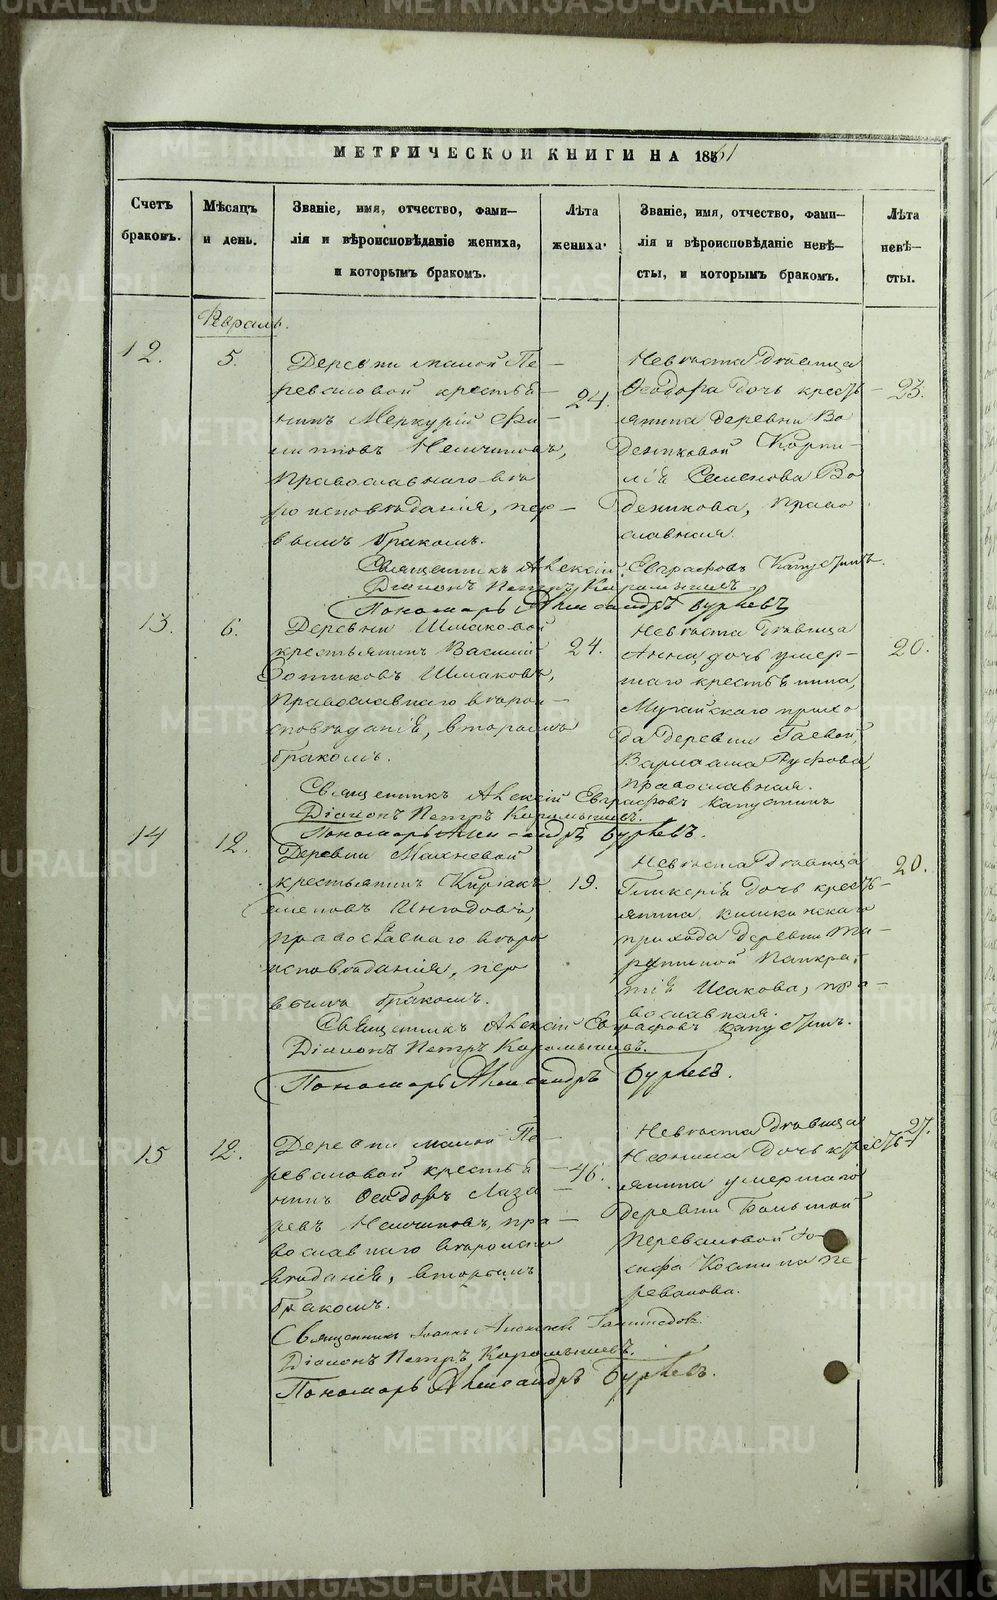 МЕТРИЧЕСКОЙ КНИГИ НА 1861
Счетъ
браковъ.
Мѣсяцъ
и день.
Званіе, имя, отчество, фами-
лія и вѣроисповѣданіе жениха,
и которымъ бракомъ.
Лѣта
жениха.
Званіе, имя, отчество, фами-
лія и вѣроисповѣданіе невѣ-
сты, и которымъ бракомъ.
Лѣта
невѣ-
сты.
Февраль.
12.
5.
Деревни малой Пе-
реваловой крестья-
нинъ Меркурій Фи-
липповъ Немчиновъ,
Православнаго вѣ
роисповѣданія, пер-
вымъ бракомъ.
24.
Невѣста дѣвица
Ѳеодора дочь кресть-
янина деревни Во
денниковой Корни-
лія Семенова Во
денникова, Право
славная.
23.
Священникъ Алексій Евграфовъ Капустинъ.
Діаконъ Петръ Карамышевъ.
Пономарь Александръ Бурševъ
13.
6.
Деревни Шмаковой
крестьянинъ Василій
Зотиковъ Шмаковъ,
Православнаго вѣрои-
сповѣданія, вторымъ
бракомъ.
24.
Невѣста дѣвица
Анна, дочь умер-
шаго крестьянина,
Мугайскаго прихо
да деревни Гаевой,
Варлаама Руфова,
православная.
20.
Священникъ Алексій Евграфовъ Капустинъ
Діаконъ Петръ Карамышевъ.
Пономарь Александръ
14
12.
Деревни Махневой
крестьянинъ Киріакъ
Семеновъ
православнаго вѣро
исповѣданія, пер
вымъ бракомъ.
19.
Невѣста дѣвица
Гликерія дочь кресть-
янина
прихода деревни
Панкра-
тія Исакова, пра-
вославная.
20.
Священникъ Алексій Евграфовъ Капустинъ.
Діаконъ Петръ Карамышевъ.
Пономарь Александръ
15
12.
Деревни малой Пе-
реваловой крестья
нинъ Ѳеодоръ Лаза
ревъ Немчиновъ, пра-
вославнаго вѣроиспо
вѣданія, вторымъ
бракомъ.
46.
Невѣста дѣвица
Неонила дочь кресть-
янина умершаго
деревни Большой
Переваловой Іо-
сифа Космина Пе-
ревалова.
27.
Священникъ Іоаннъ
Діаконъ Петръ Карамышевъ.
Пономарь Александръ